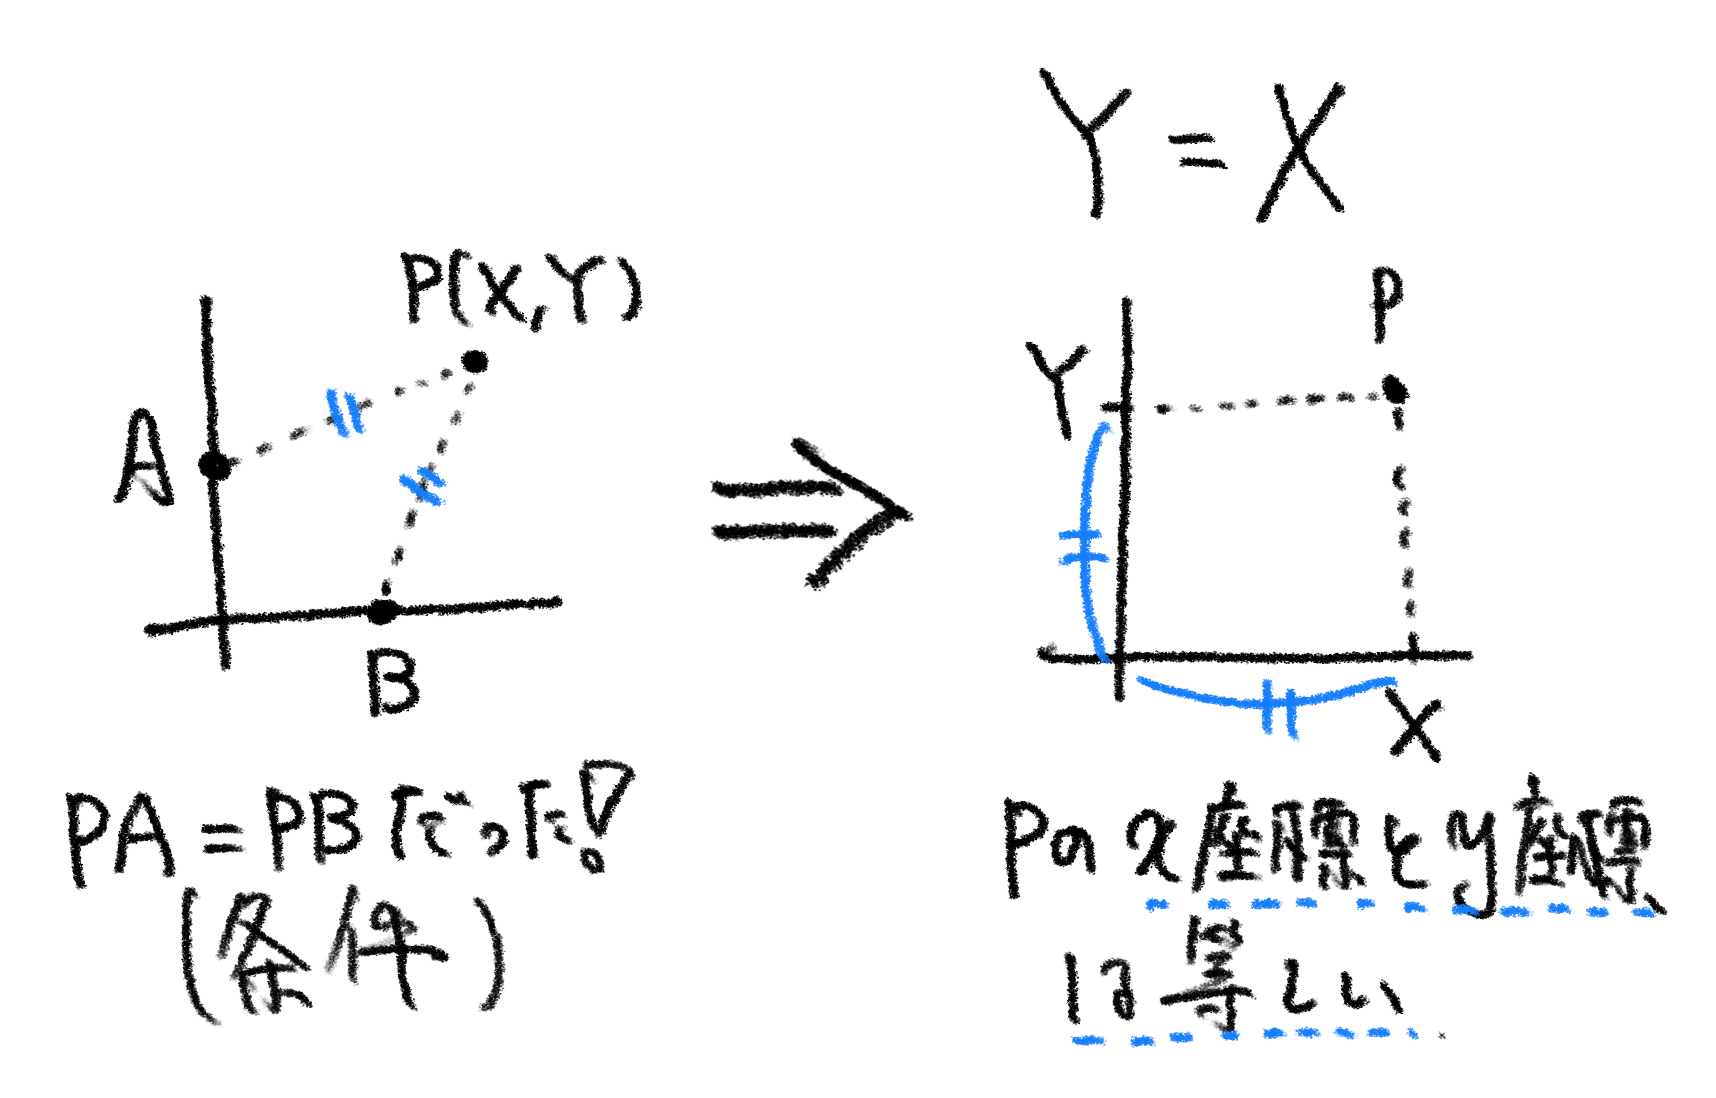 P(X,Y)
A
B
PA=PBだった!
(条件)
Y=X
P
Y
X
Pのx座標とy座標
は等しい